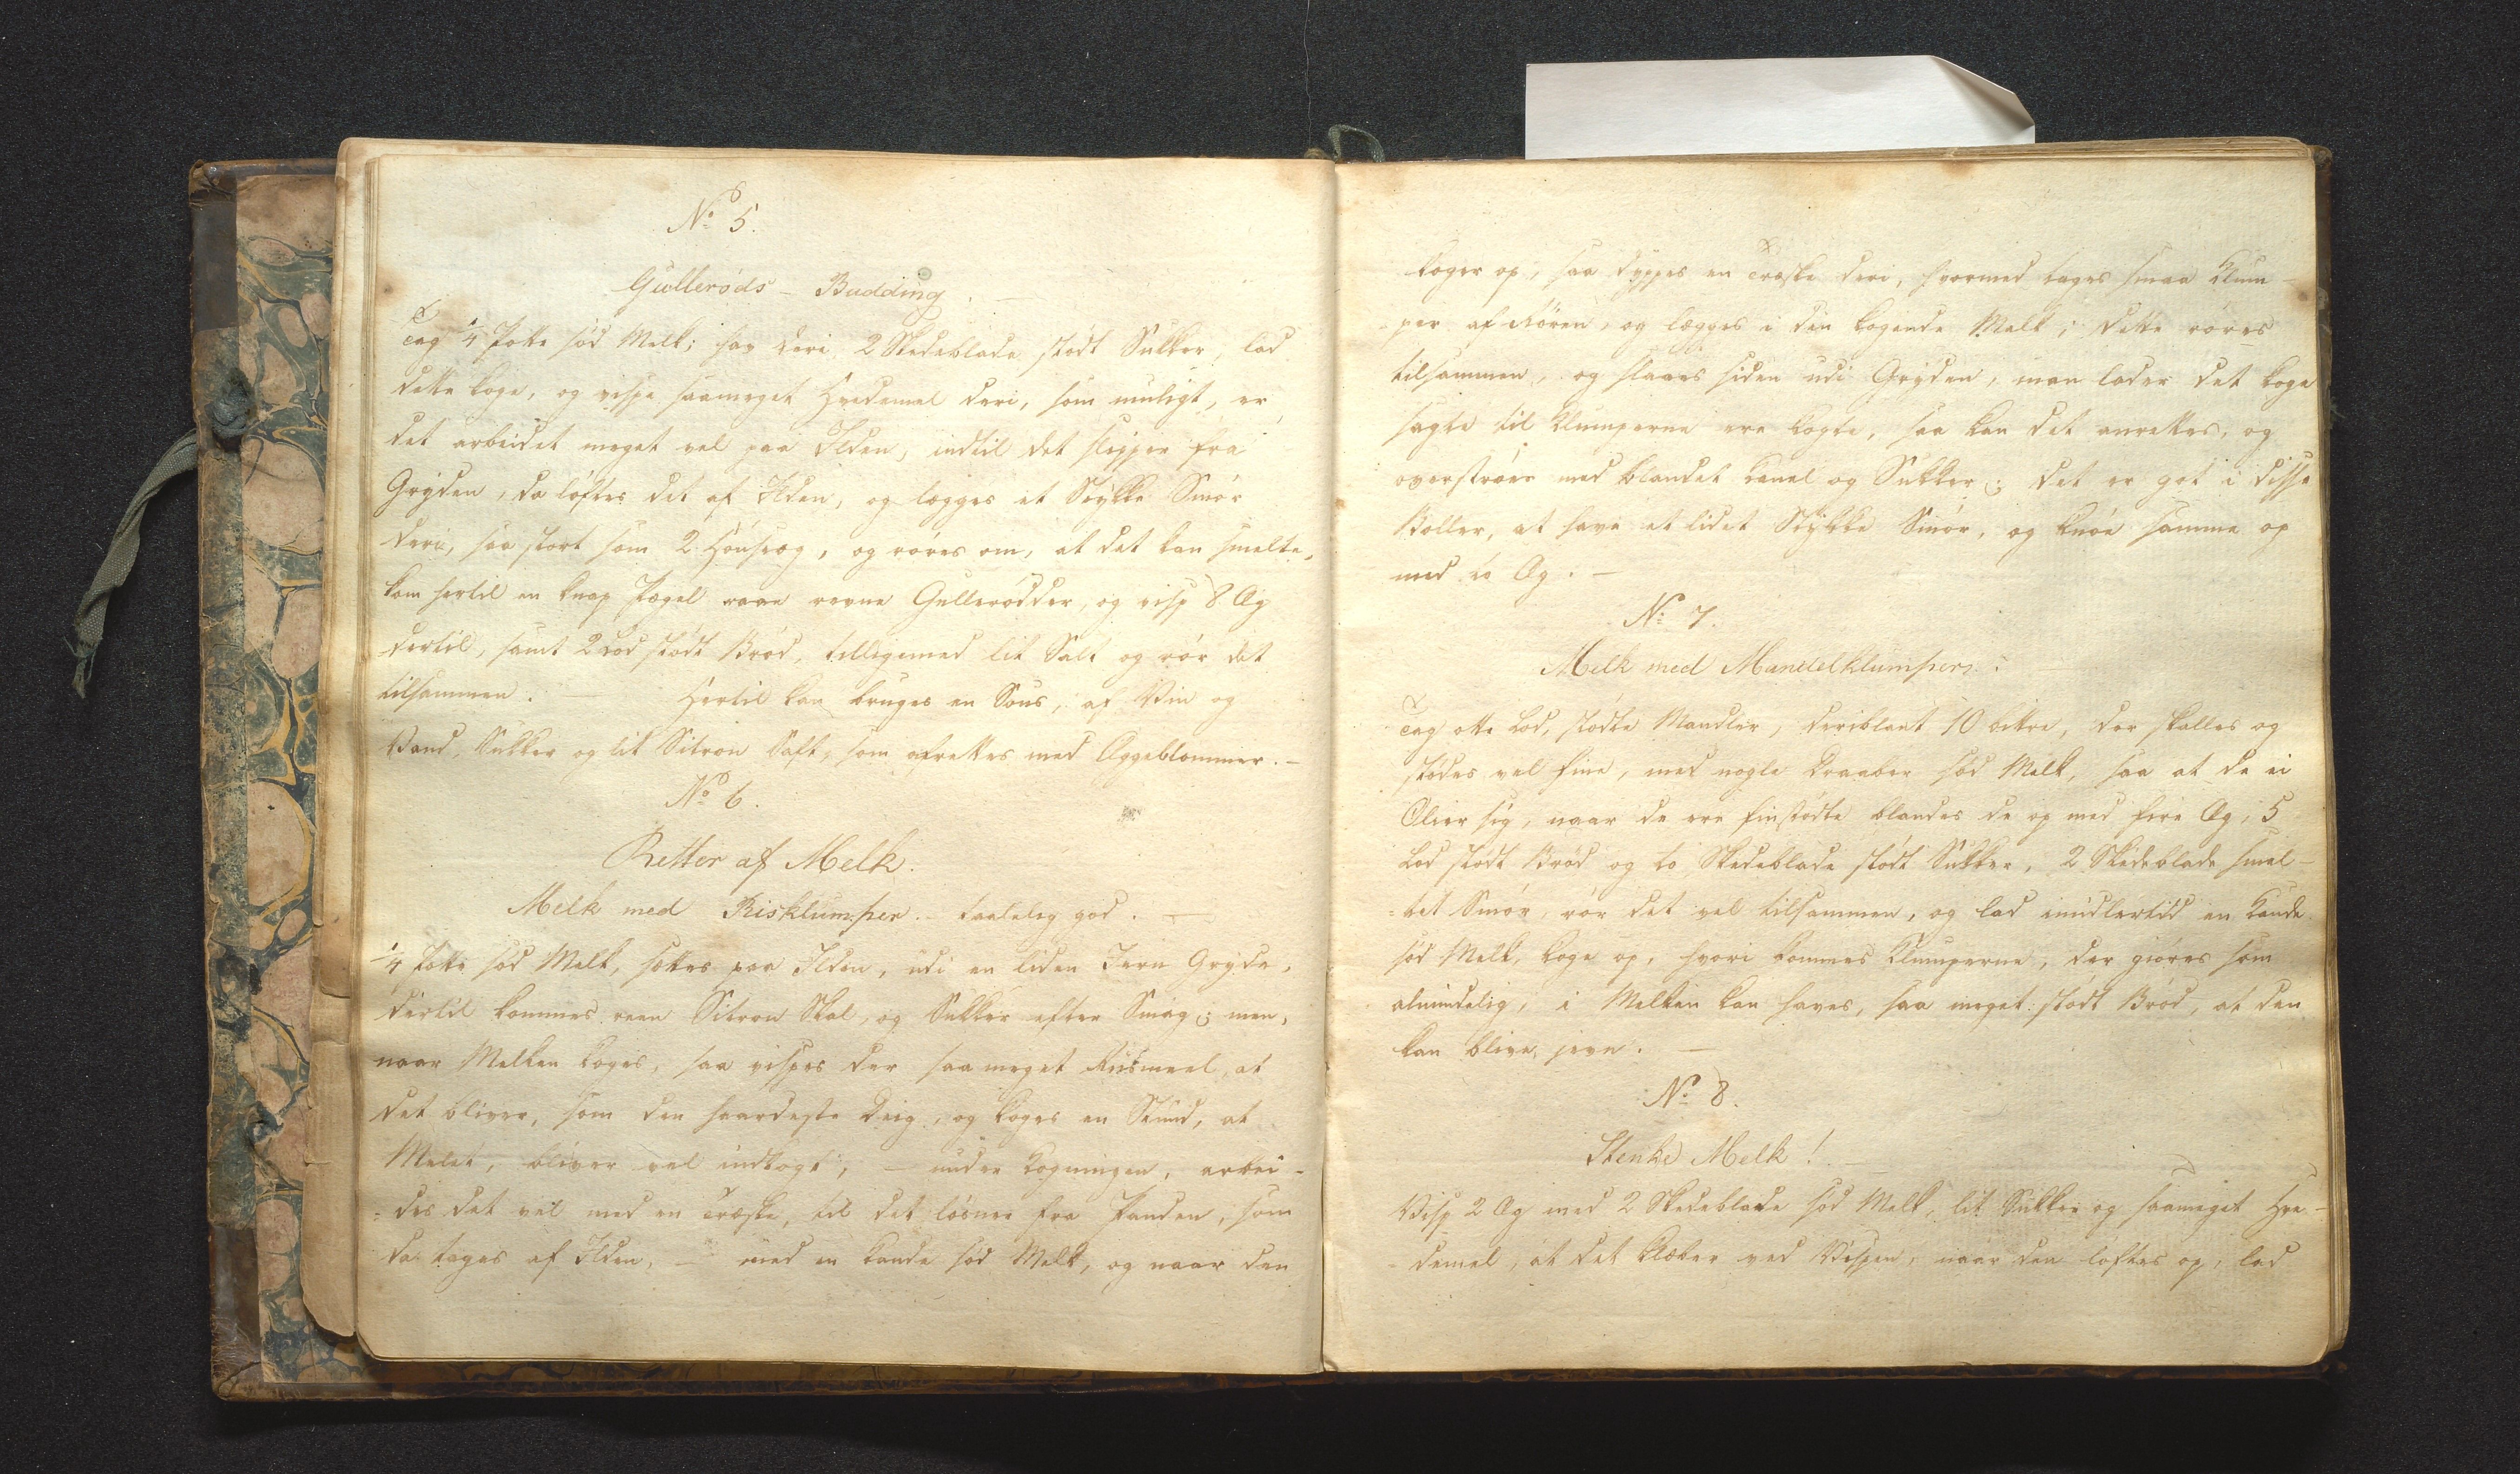 No 5.
Gullerøds - Budding. —
Tag 1/4 Potte sød Melk; hav deri 2 Skedeblade stødt Sukker, lad
dette koge, og vispe saameget Hvedemel deri, som muligt, er
det arbeidet meget vel paa Ilden, indtil det slipper fra
Gryden, da løftes det af Ilden, og lægges et Stykke Smør
deri, saa stort som 2 Hønseæg, og røres om, at det kan smelte,
kom hertil en knap Pægel raae revne Gullerødder, og visp 8 Æg
dertil, samt 2 Lod stødt Brød, tilligemed lit Salt og rør det
tilsammen. — Hertil kan bruges en Sous, af Vin og
Vand, Sukker og lit Sitron Saft, som afrettes med Æggeblommer. —
No 6.
Retter af Melk.
Melk med Risklumper. - taalelig god. —
1/4 Potte sød Melk, settes paa Ilden, udi en liden Jern Gryde,
dertil kommes reen Sitron Skal, og Sukker efter Smag; men,
naar Melken koges, saa vispes der saa meget Riismeel, at
det bliver, som den haardeste Deig, og koges en Stund, at
Melet, bliver vel indkogt, — under Kogningen, arbei-
=des det vel med en Træske, til det løsner fra Panden, som
da tages af Ilden, — med en Kande sød Melk, og naar den
koger op, saa dyppes en Træske deri, hvormed tages smaa Klum-
per af Røren, og lægges i den kogende Melk; dette røres
tilsammen, og slaaes siden udi Gryden, man lader det koge
sagte til Klumperne ere kogte, saa kan det anrettes, og
overstrøes med blandet Kanel og Sukker; det er got i disse
Boller, at have et lidet Stykke Smør, og knøe samme op
med to Æg. —
No 7.
Melk med Mandelklumper. :
Tag otte Lod, stødte Mandler, deriblant 10 bitre, der skalles og
stødes vel fine, med nogle Draaber sød Melk, saa at de ei
Olier sig, naar de ere finstødte blandes de op med fire Æg, 5
Lod stødt Brød og to Skedeblade stødt Sukker, 2 Skedeblade smel-
=tet Smør, rør det vel tilsammen, og lad imidlertid en Kande
sød Melk, koge op, hvori kommes Klumperne, der giøres som
almindelig, i Melken kan haves, saa meget stødt Brød, at den
kan blive jevn. —
No 8.
Stenke Melk! —
Visp 2 Æg med 2 Skedeblade sød Melk, lit Sukker og saameget Hve-
=demel, at det klæber ved Vispen, naar den løftes op, lad